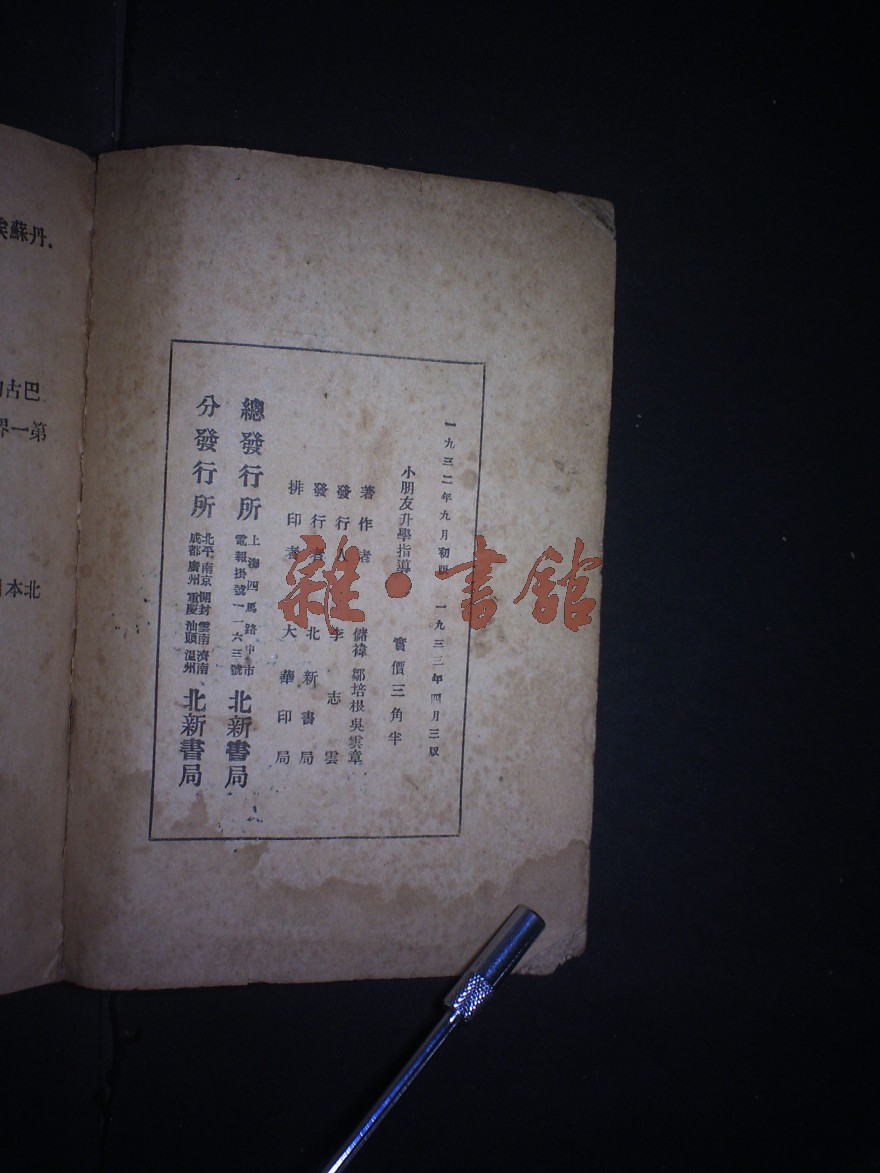 一九三二年九月初版 一九三三年四月三版
小朋友升學指導 實價三角半
著作者 儲褘 鄒培根 吳雲章
發行人 李志雲
發行者 北新書局
排印者 大華印局
總發行所 上海四馬路中市 北新書局
電報掛號一一六三號
分發行所 北平 南京 開封 雲南 濟南 北新書局
成都 廣州 重慶 汕頭 溫州
雜·書館
蘇丹.
巴古
界一第
本北